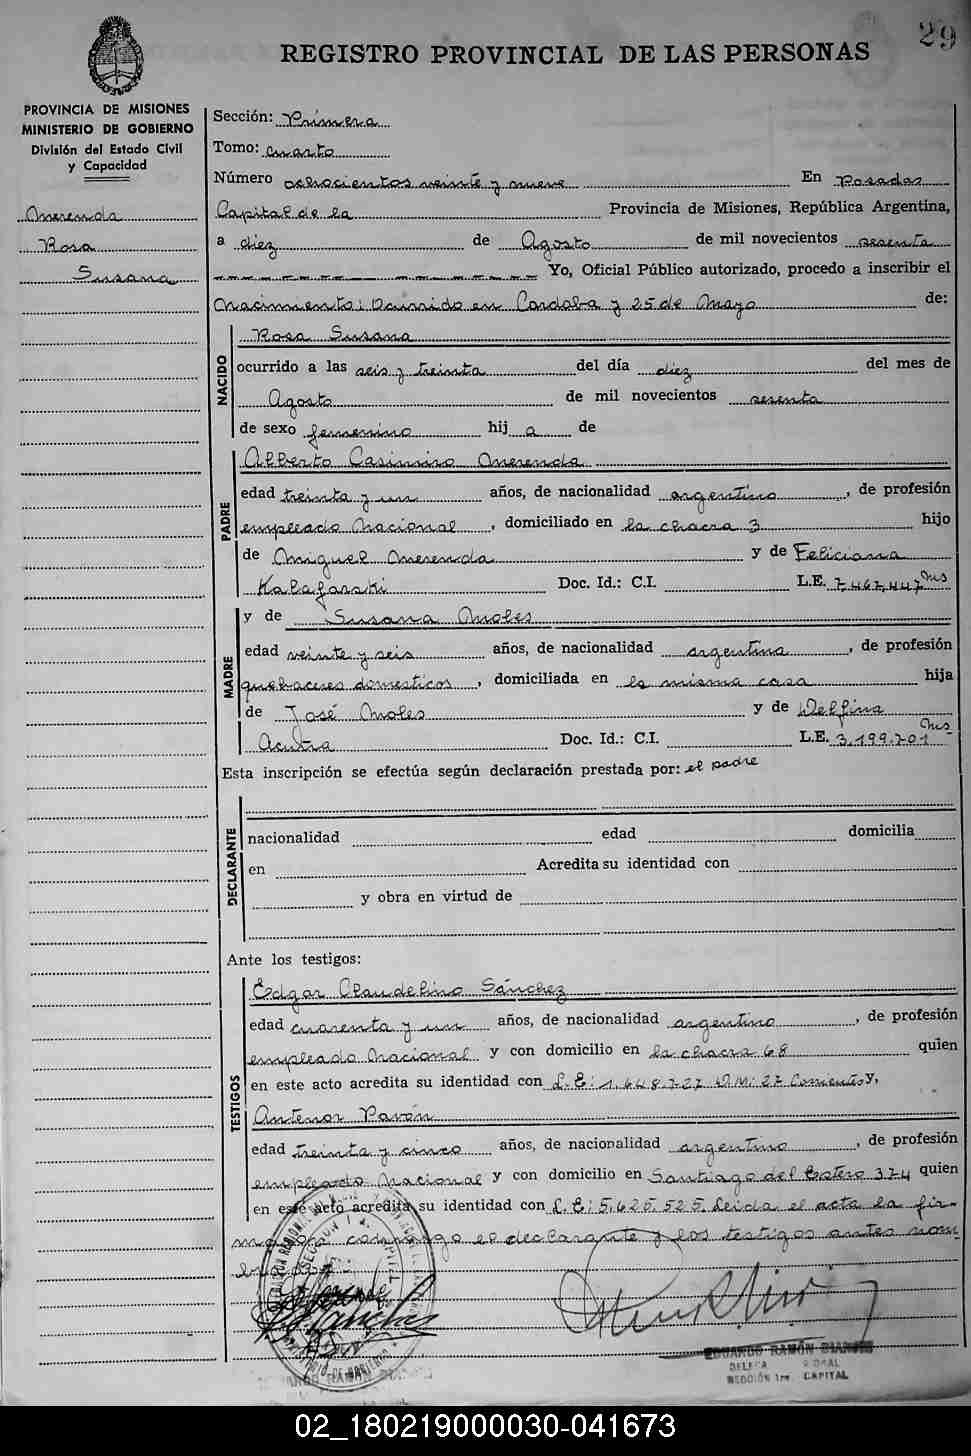 29
REGISTRO PROVINCIAL DE LAS PERSONAS
PROVINCIA DE MISIONES
MINISTERIO DE GOBIERNO
División del Estado Civil
y Capacidad
Merenda
Rosa
Susana
Sección: Primera
Tomo: cuarto
Número ochocientos veinte y nueve En Posadas
Capital de la Provincia de Misiones, República Argentina,
a diez de Agosto de mil novecientos sesenta
Yo, Oficial Público autorizado, procedo a inscribir el
Nacimiento: Ocurrido en Cordoba y 25 de Mayo de:
NACIDO
Rosa Susana
ocurrido a las seis y treinta del día diez del mes de
Agosto de mil novecientos sesenta
de sexo femenino hij a de
PADRE
Alberto Casimiro Merenda
edad treinta y un años, de nacionalidad argentino, de profesión
empleado Nacional, domiciliado en la chacra 3 hijo
de Miguel Merenda y de Feliciana
Kalafarski Doc. Id.: C.I. L.E. 7.467.447 Mis
MADRE
y de Susana Moles
edad veinte y seis años, de nacionalidad argentina, de profesión
quehaceres domesticos, domiciliada en la misma casa hija
de José Moles y de Delfina
Acuña Doc. Id.: C.I. L.E. 3.199.701 Mis
Esta inscripción se efectúa según declaración prestada por: el padre
DECLARANTE
nacionalidad edad domicilia
en Acredita su identidad con
y obra en virtud de
Ante los testigos:
TESTIGOS
Edgar Claudelino Sánchez
edad cuarenta y un años, de nacionalidad argentino, de profesión
empleado Nacional y con domicilio en la chacra 68 quien
en este acto acredita su identidad con L.E: 1.648.727 D.M: 27 Corrientes y,
Antenor Pavón
edad treinta y cinco años, de nacionalidad argentino, de profesión
empleado Nacional y con domicilio en Santiago del Estero 374 quien
en este acto acredita su identidad con L.E: 5.625.525. Leida el acta la fir-
man conmigo el declarante y los testigos antes nom
brados
EDUARDO RAMÓN
SECCIÓN 1ra. CAPITAL
02_180219000030-041673